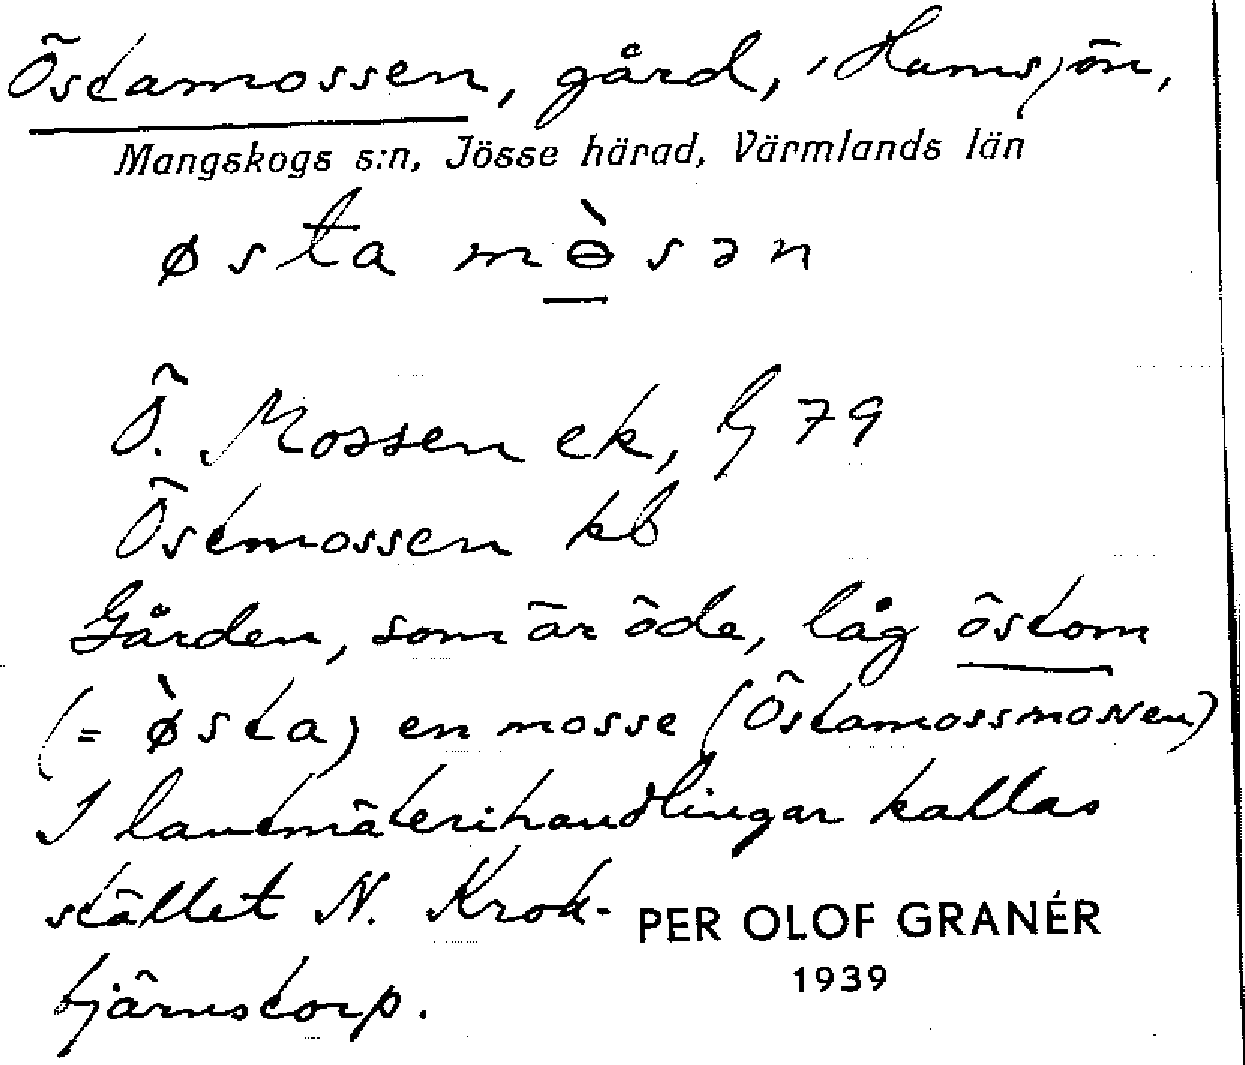 Östamossen, gård, i Humsjön,
Mangskogs s:n, Jösse härad, Värmlands län
østa mɵ̀sən
Ö. Mossen ek, 79
Östmossen kb
Gården, som är öde, låg östom
(= ø̀sta) en mosse (Östamossmossen)
I lantmäterihandlingar kallas
stället N. Krok-
tjärnstorp.
PER OLOF GRANÉR
1939